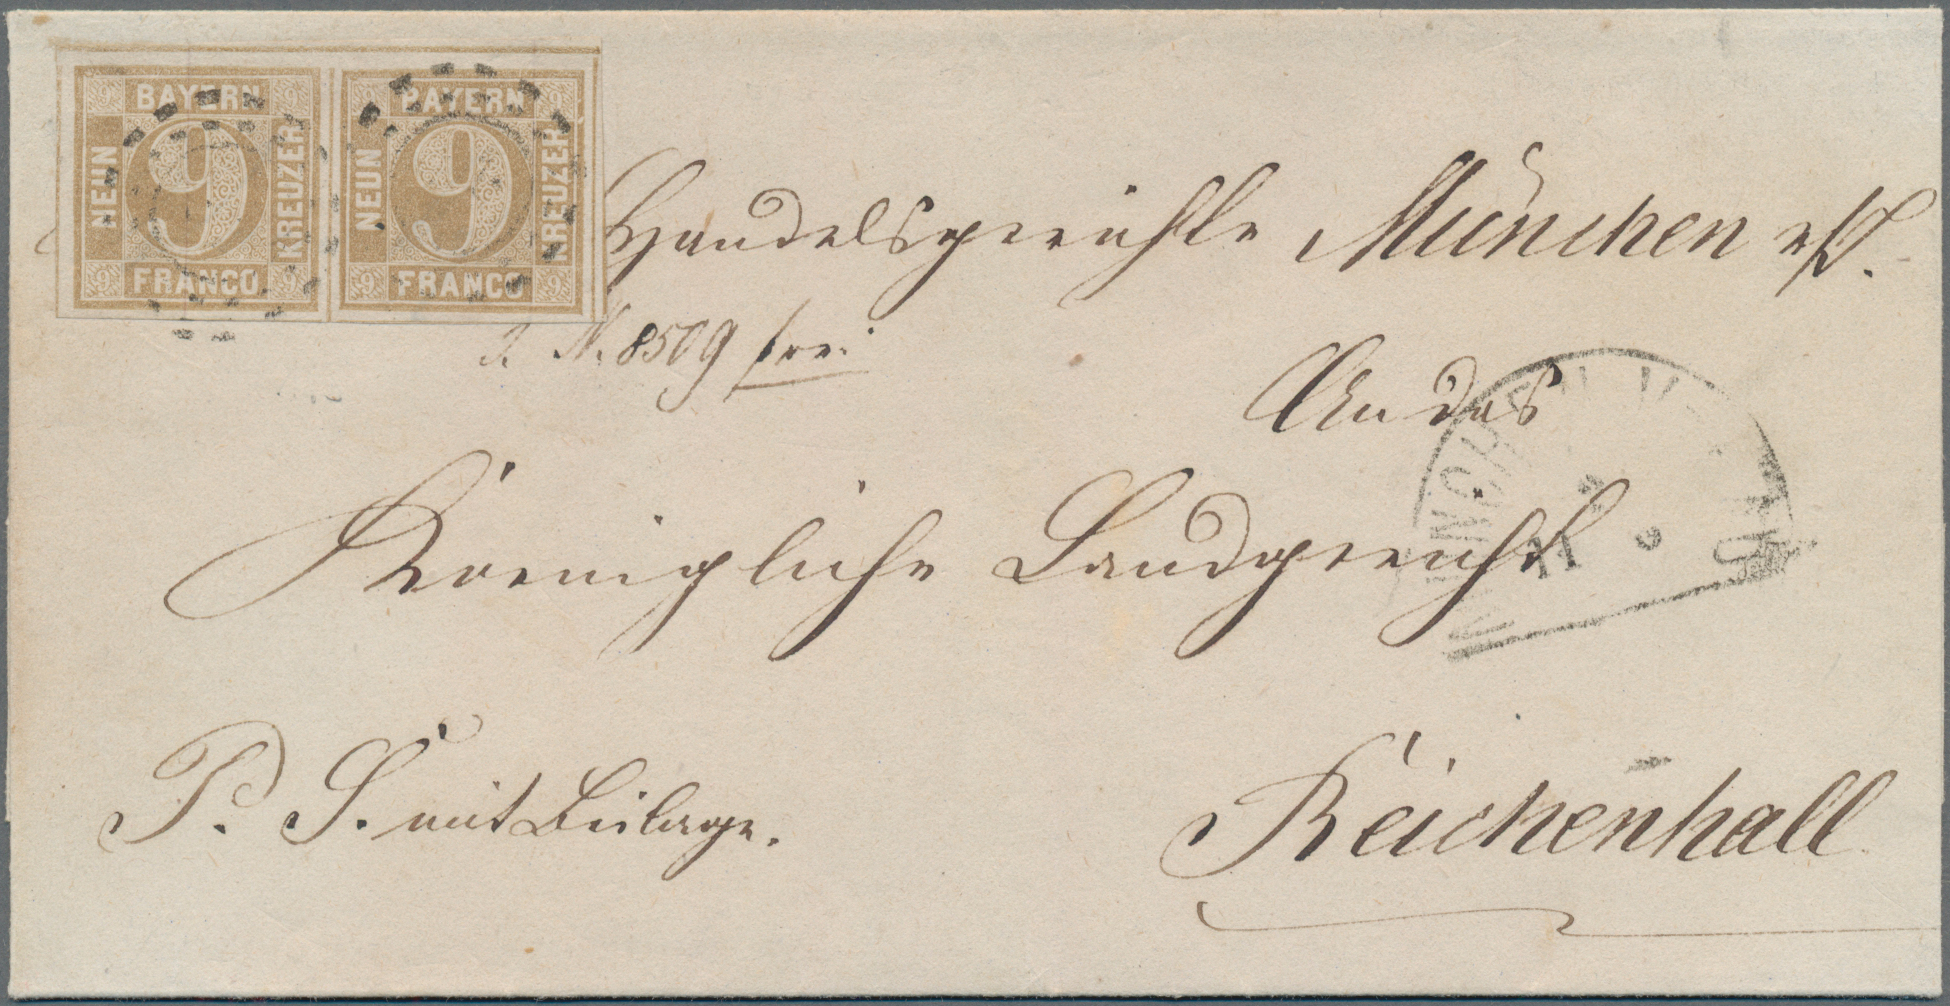 BAYERN
NEUN 9 KREUZER
FRANCO
BAYERN
NEUN 9 KREUZER
FRANCO
Handelsgerichte München
N. 8509 frei
An das
Koenigliche Landgericht
MÜNCHEN
11
P. S. mit Beilage.
Reichenhall